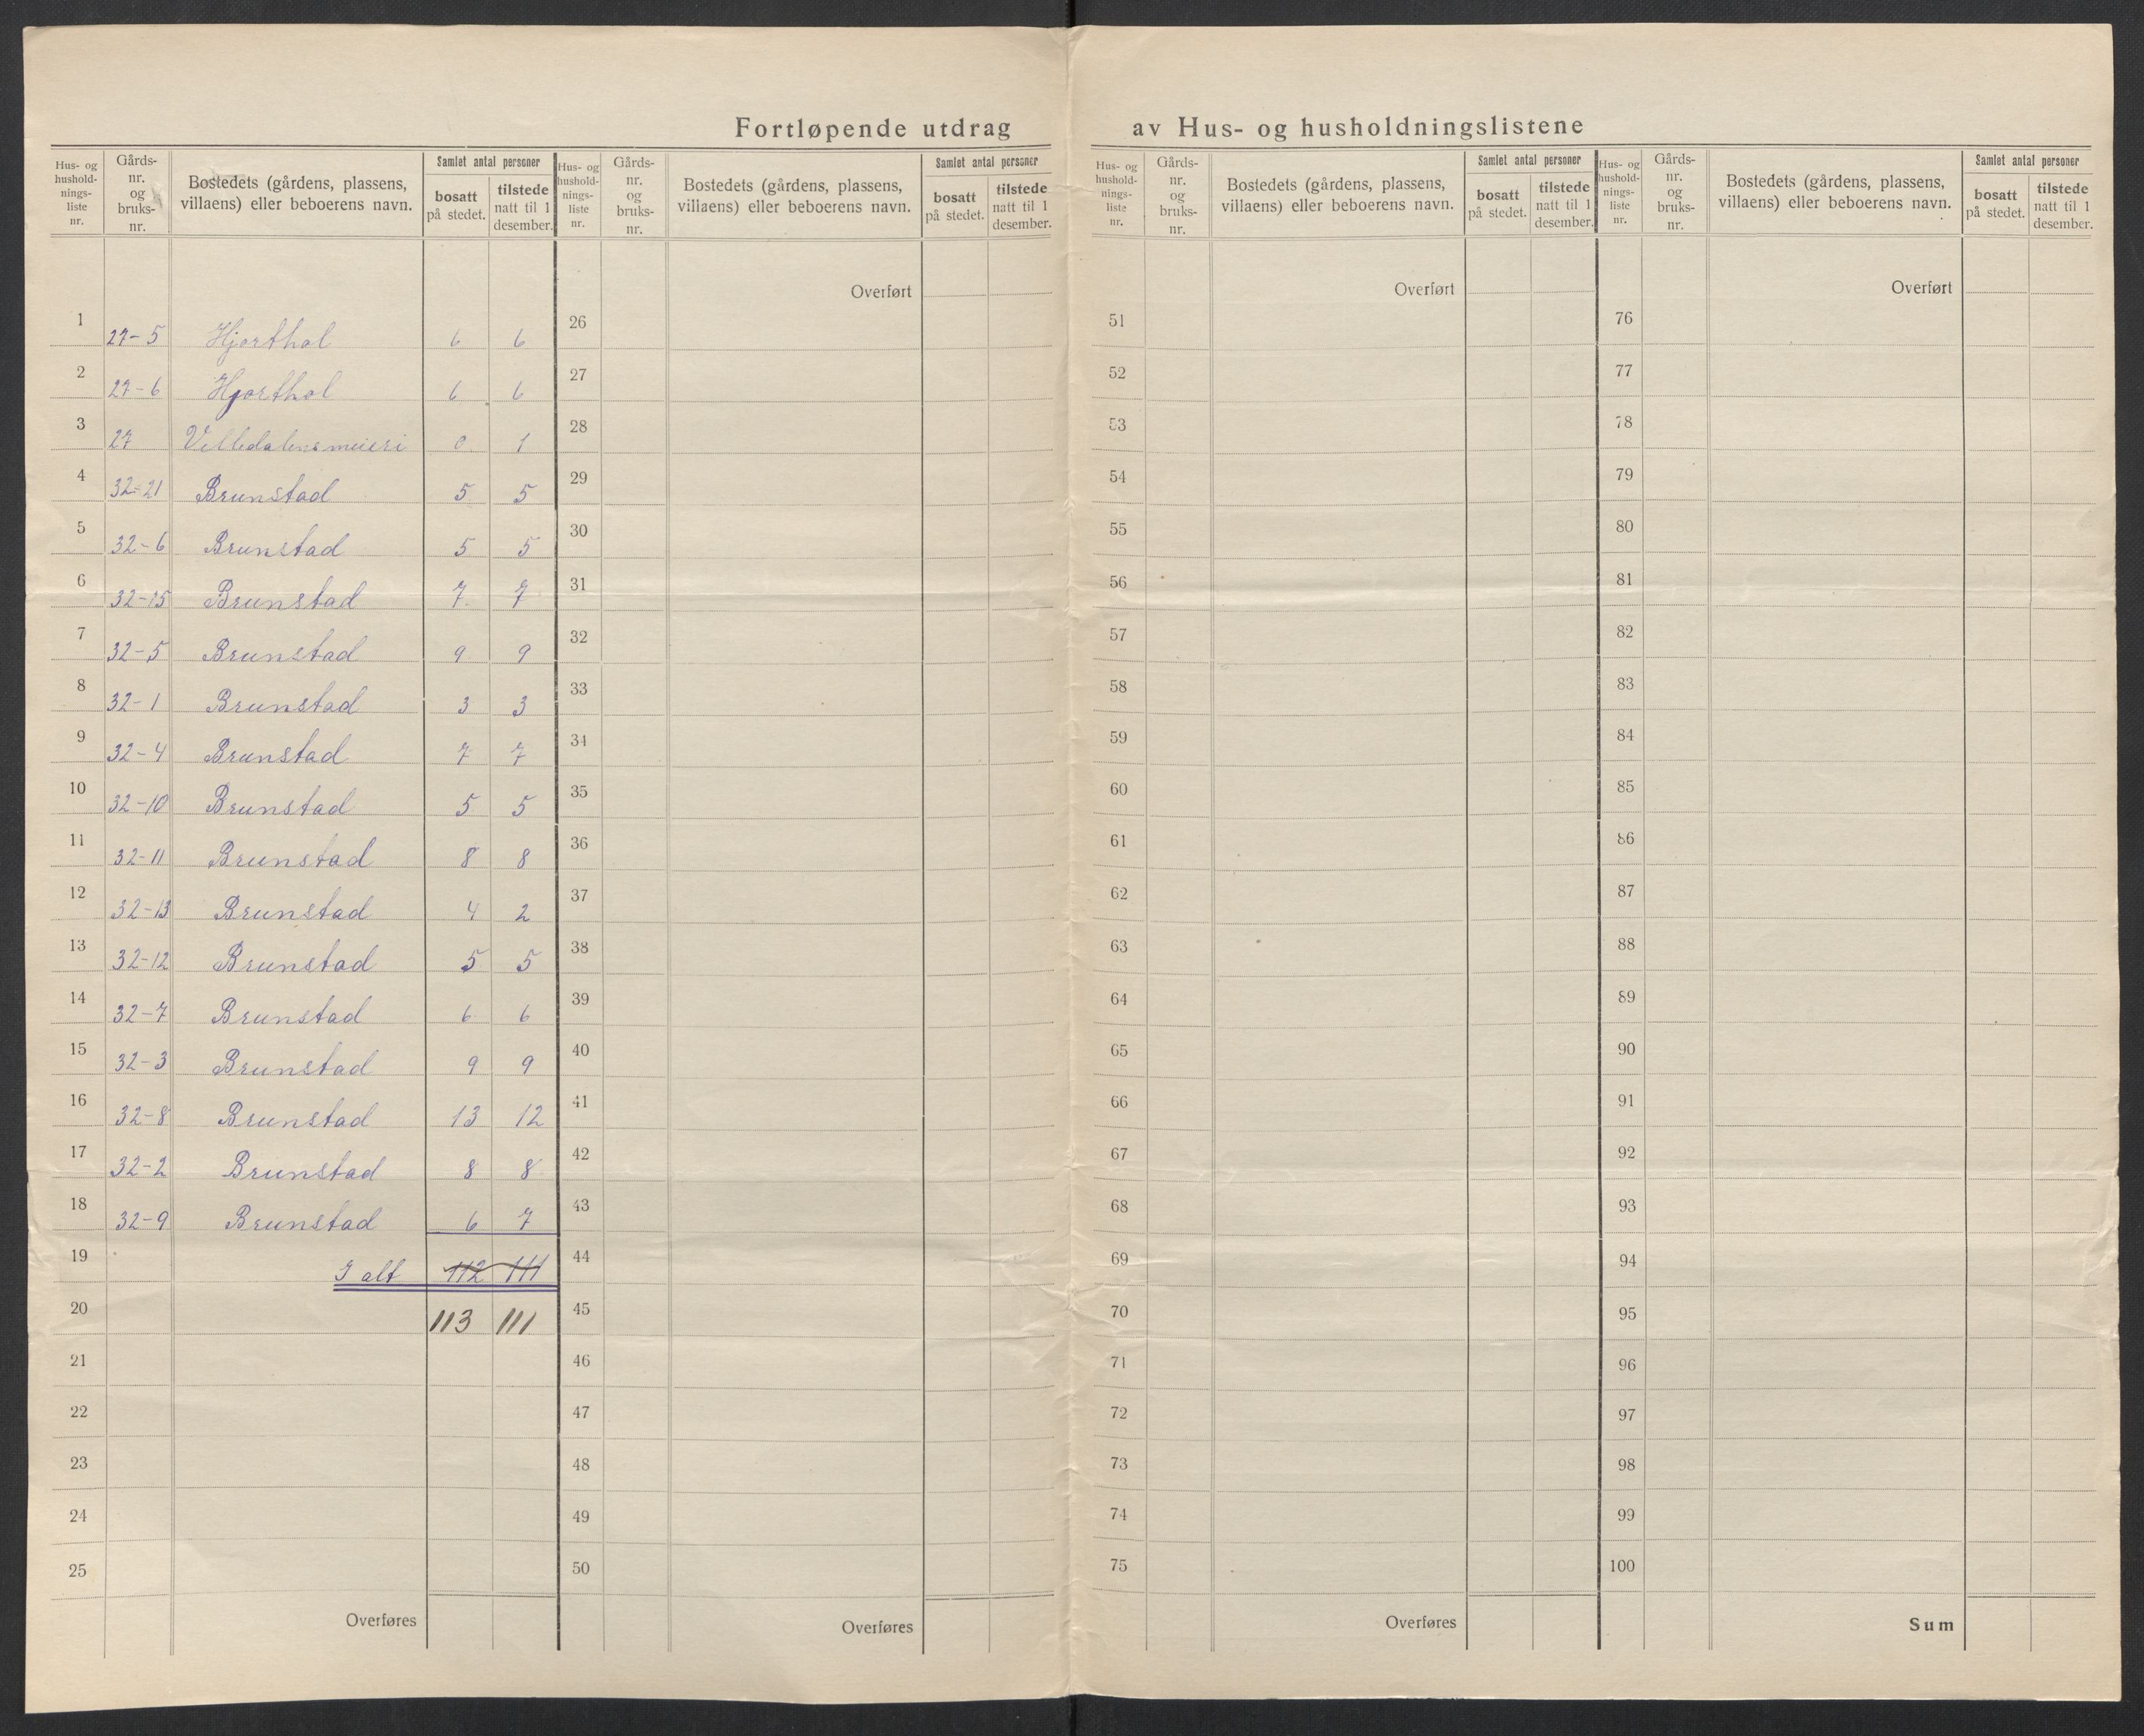 Fortløpende utdrag av Hus- og husholdningslistene
Hus- og hushold-nings-liste nr. | Gårds-nr. og bruks-nr. | Bostedets (gårdens, plassens, villaens) eller beboerens navn. | Samlet antal personer | bosatt på stedet. | tilstede natt til 1 desember.
1 27-5 Hjorthol 6 6
2 27-6 Hjorthol 6 6
3 27 Velledalens meieri 0 1
4 32-21 Brunstad 5 5
5 32-6 Brunstad 5 5
6 32-15 Brunstad 7 7
7 32-5 Brunstad 9 9
8 32-1 Brunstad 3 3
9 32-4 Brunstad 7 7
10 32-10 Brunstad 5 5
11 32-11 Brunstad 8 8
12 32-13 Brunstad 4 2
13 32-12 Brunstad 5 5
14 32-7 Brunstad 6 6
15 32-3 Brunstad 9 9
16 32-8 Brunstad 13 12
17 32-2 Brunstad 8 8
18 32-9 Brunstad 6 7
19 I alt 112 111
20 113 111
21
22
23
24
25
Overføres
Hus- og hushold-nings-liste nr. | Gårds-nr. og bruks-nr. | Bostedets (gårdens, plassens, villaens) eller beboerens navn. | Samlet antal personer | bosatt på stedet. | tilstede natt til 1 desember.
Overført
26
27
28
29
30
31
32
33
34
35
36
37
38
39
40
41
42
43
44
45
46
47
48
49
50
Overføres
Hus- og hushold-nings-liste nr. | Gårds-nr. og bruks-nr. | Bostedets (gårdens, plassens, villaens) eller beboerens navn. | Samlet antal personer | bosatt på stedet. | tilstede natt til 1 desember.
Overført
51
52
53
54
55
56
57
58
59
60
61
62
63
64
65
66
67
68
69
70
71
72
73
74
75
Overføres
Hus- og hushold-nings-liste nr. | Gårds-nr. og bruks-nr. | Bostedets (gårdens, plassens, villaens) eller beboerens navn. | Samlet antal personer | bosatt på stedet. | tilstede natt til 1 desember.
Overført
76
77
78
79
80
81
82
83
84
85
86
87
88
89
90
91
92
93
94
95
96
97
98
99
100
Sum